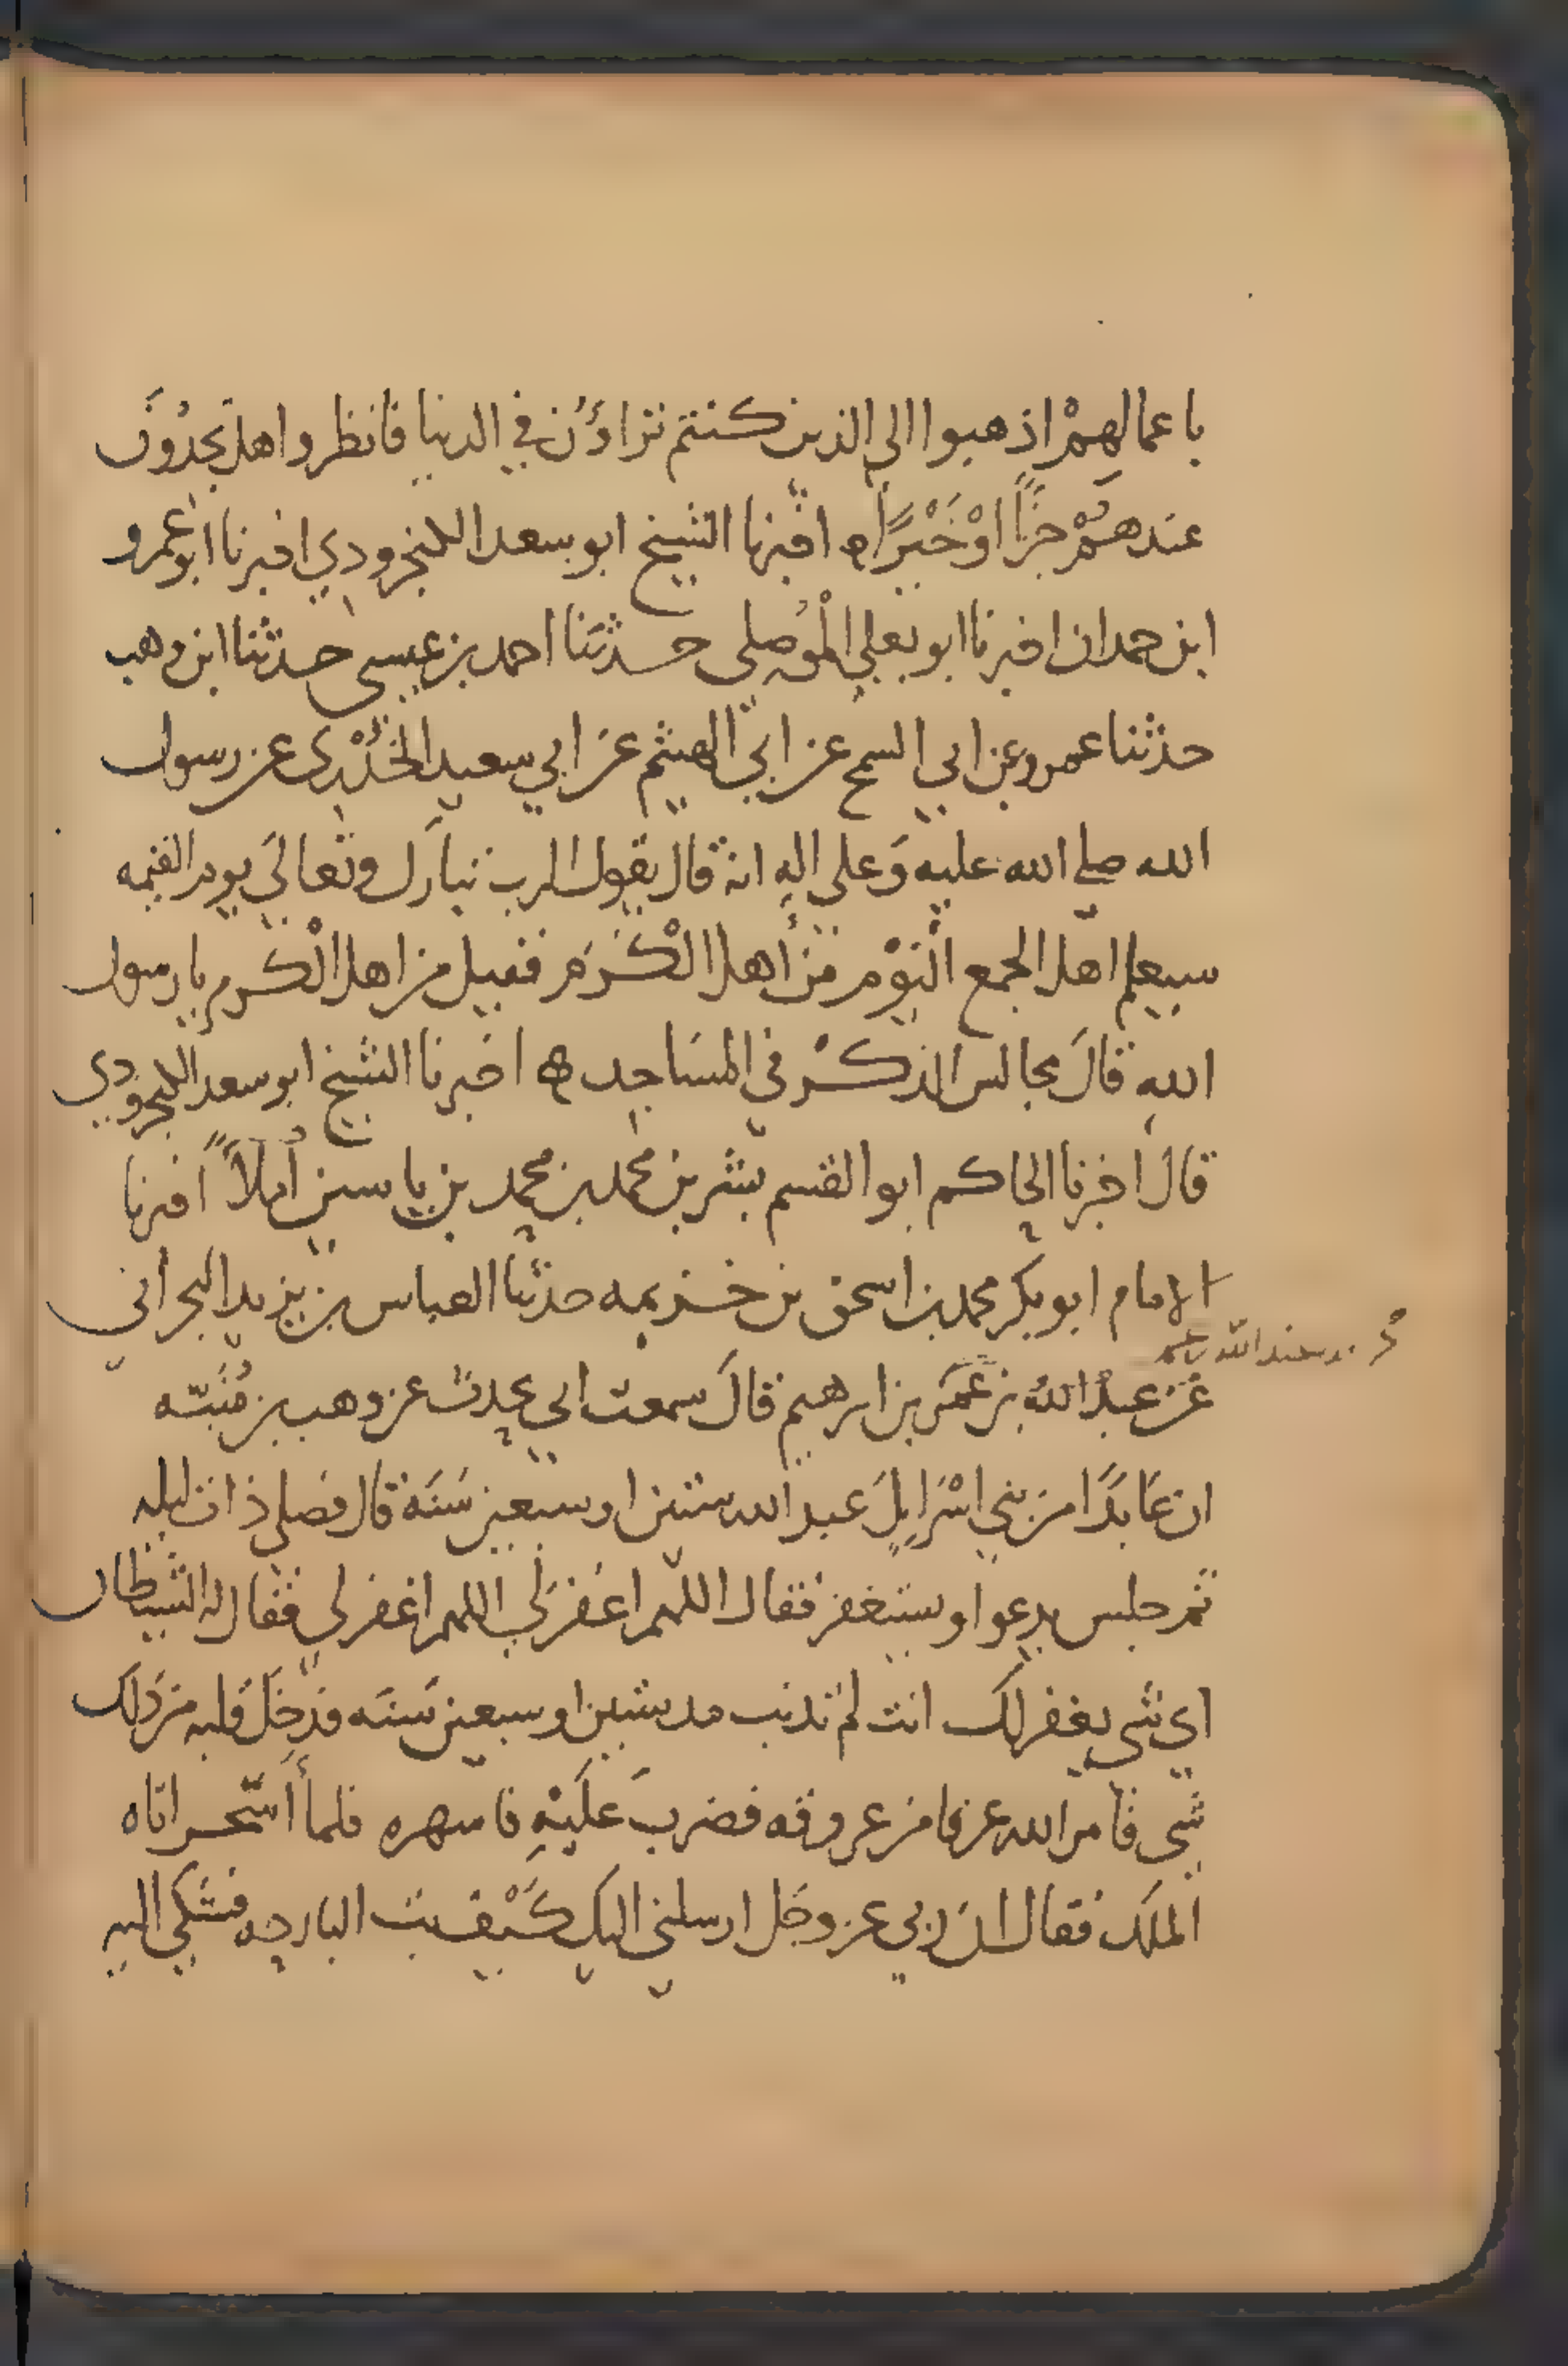 باعمالهمْ اذهبوا الي الذين كنتم تراؤن في الدنيا فانظروا هل تجدُونَ
عندهمْ جزًا اوْ خَيْرًا ه اخبرنا الشيخ ابو سعد الكنجرودي اخبرنا ابو عمرو
ابن حمدان اخبرنا ابو يعلي الموْصلي حدثنا احمد بن عيسى حدثنا ابن وهب
حدثنا عمرو عن ابي السمح عن ابي الهيثم عن ابي سعيد الخُدْري عن رسول
الله صلي الله عليه وَعلي اله انه قال يقول الرب تبارك وتعالي يوم القيمه
سيعلم اهل الجمع الْيَوْم من أهل الْكَرَم فقيل من اهل الْكرم يا رسول
اللهِ قالَ مجالس الذكْر في المسَاجد ه اخبرنا الشيخ ابو سعد الكنجرودي
قال اخبرنا الحاكم ابو القسم بشر بن محمد بن محمد بن ياسين أملاً اخبرنا
الامام ابو بكر محمد بن اسحق بن خزيمه حدثنا العباس بن يزيد البحراني
عَن عبدُ اللهُ بن عمَر بن ابرهيم قالَ سمعت ابي يحدث عن وهب بن مُنَبّه
ان عَابدًا من بني اسْرَايلَ عبد الله ستين او سبعين سَنَة قال فصلى ذات ليله
ثم جلس يدعوا ويستغفر فقال اللهم اغفر لي اللهم اغفر لي فقال له الشيطان
اي شي يغفر لك انت لم تذنب مد ستين او سبعين سَنَه فدخَل قلبه من ذلك
شي فامر الله عرقا من عروقه فضربَ عَلَيْهِ فاسهره فلما أسّحر اتاه
الملَك فقال ان ربي عز وجَل ارسلني اليك كَيْف بت البارحه فشكي اليه